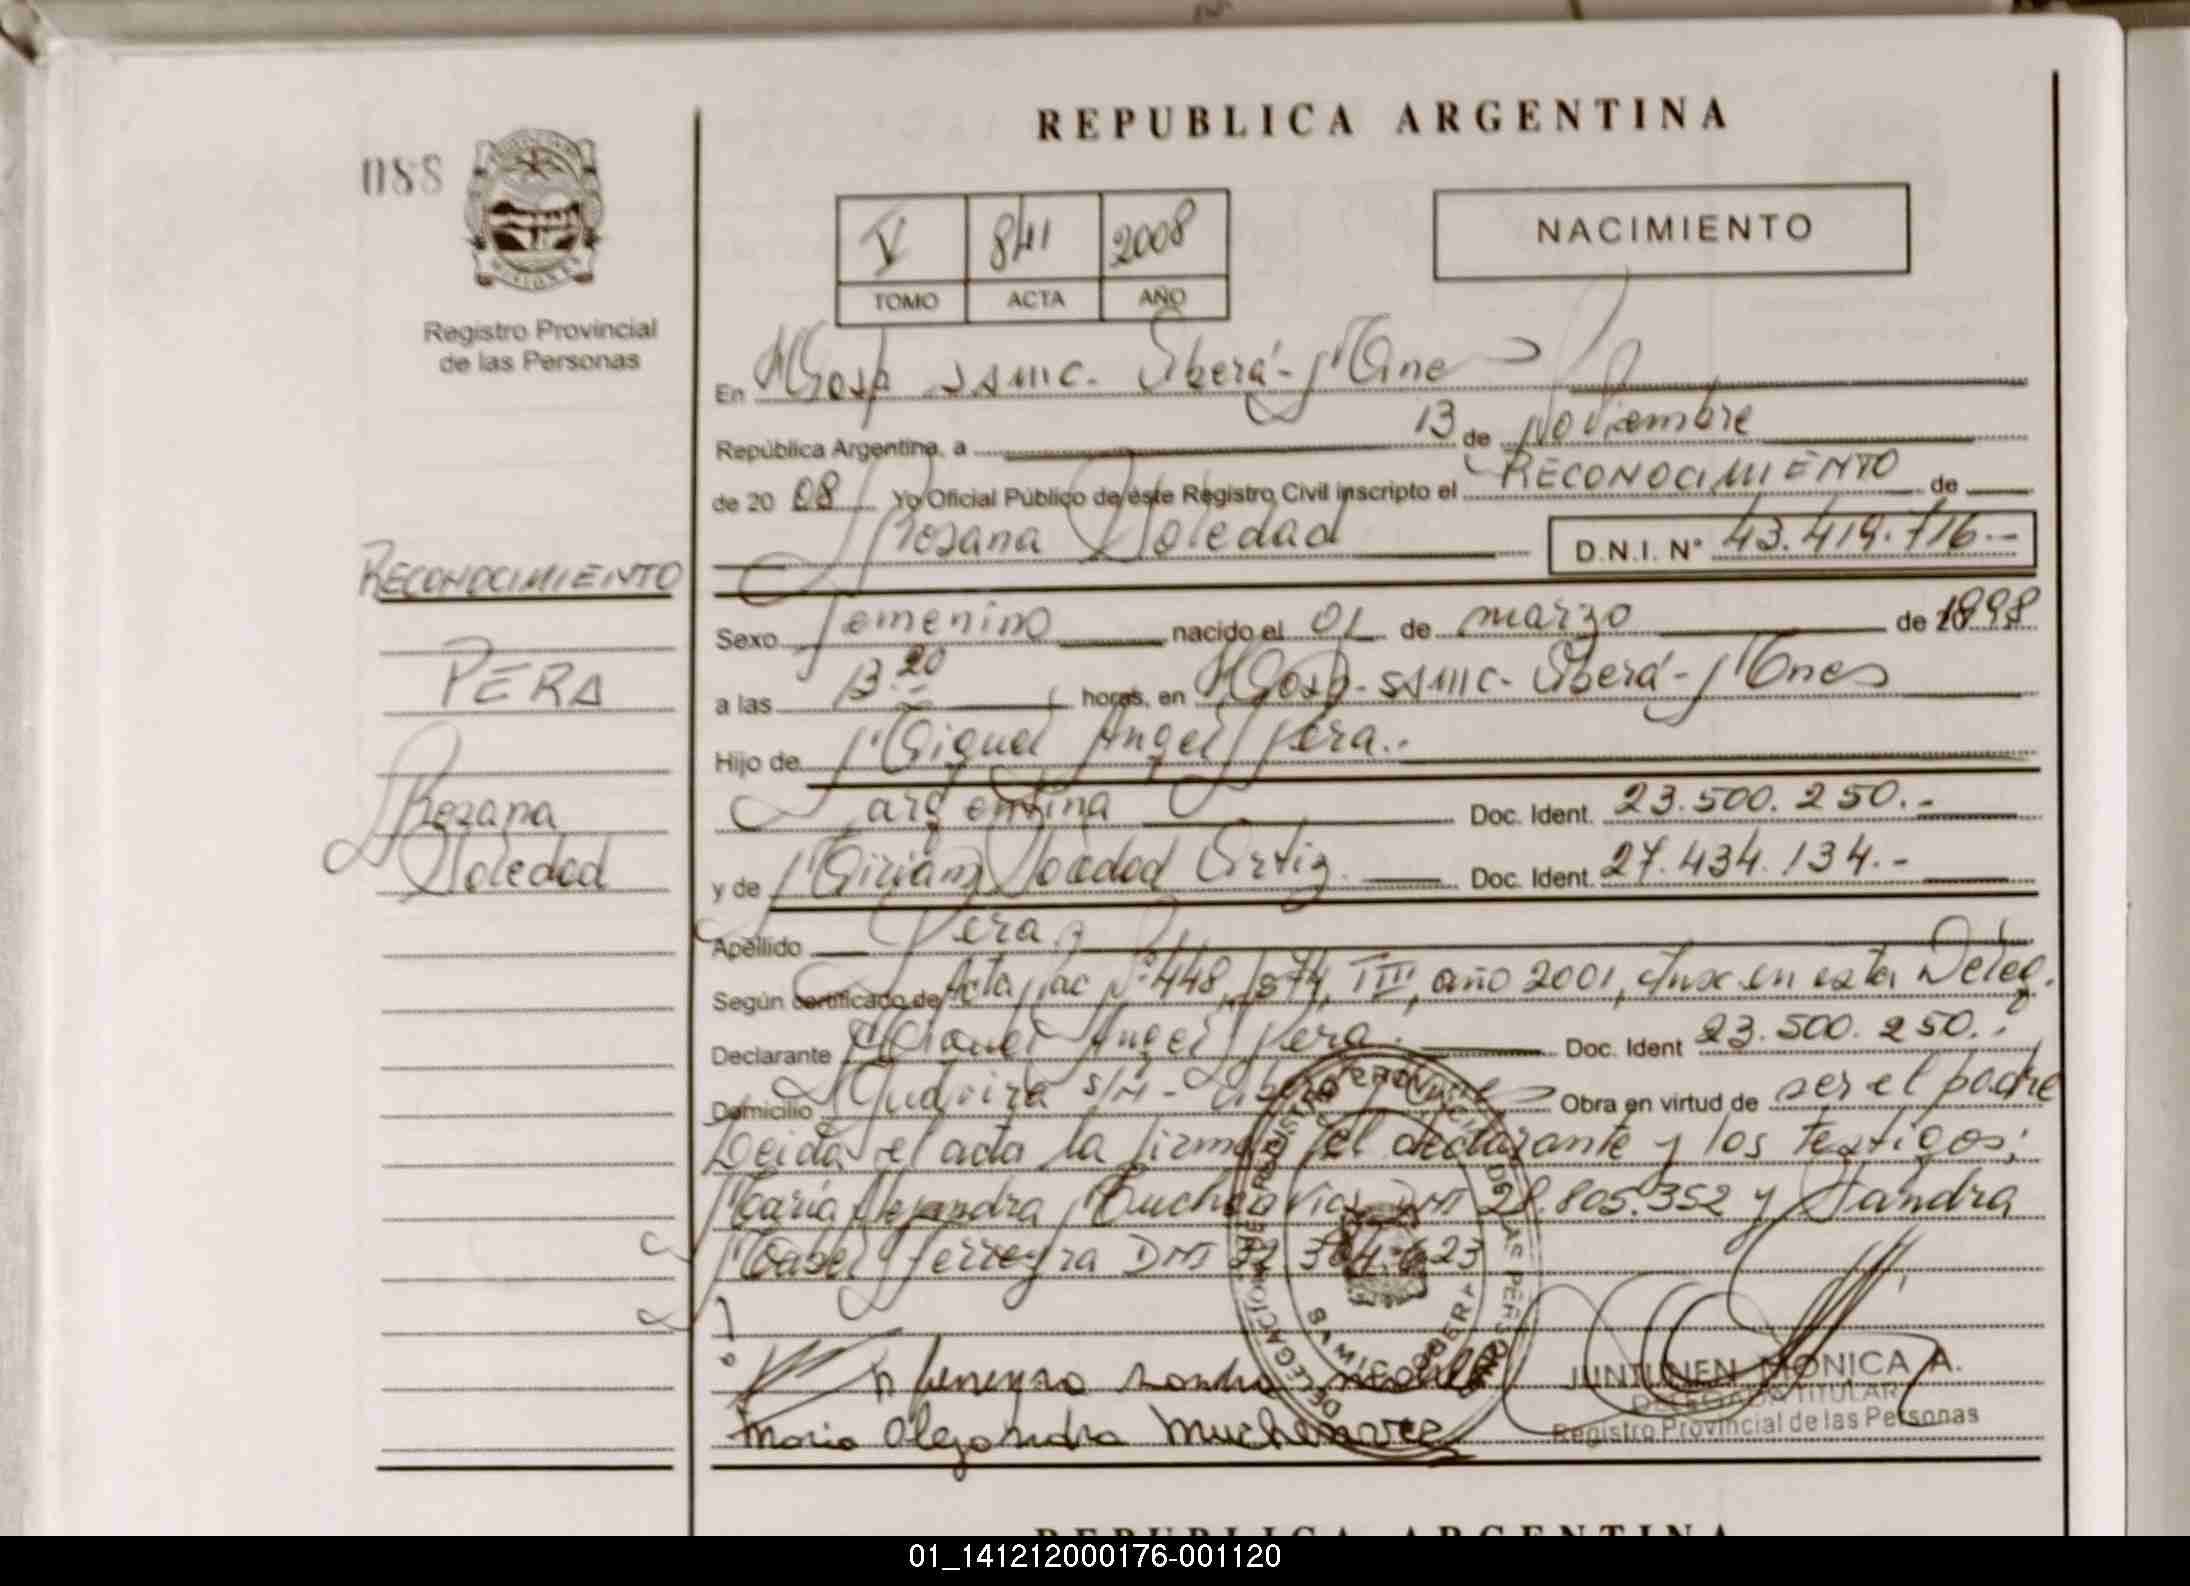 REPUBLICA ARGENTINA
088
V 841 2008
TOMO ACTA AÑO
NACIMIENTO
Registro Provincial
de las Personas
En Hosp SAMIC. Oberá - Mnes
República Argentina, a 13 de Noviembre
de 20 08 Yo Oficial Público de éste Registro Civil inscripto el RECONOCIMIENTO de
Rosana Soledad D.N.I. N° 43.419.716.-
Sexo Femenino nacido el 01 de marzo de 1998
a las 13.20 horas, en Hosp. SAMIC. Oberá - Mnes
Hijo de Miguel Angel Pera.-
argentina Doc. Ident. 23.500.250.-
y de Miriam Soledad Ortiz. Doc. Ident. 27.434.134.-
Apellido Pera.
Según certificado de Acta Nac Nº 448, Tº III, año 2001, Insc en esta Deleg.
Declarante Miguel Angel Pera. Doc. Ident 23.500.250.-
Domicilio s/n - Oberá Mnes Obra en virtud de ser el padre
Leida el acta la firman el declarante y los testigos:
Maria Alejandra DNI 28.805.352 y Sandra
Mabel Ferreyra DNI
RECONOCIMIENTO
PERA
Rosana
Soledad
Maria Alejandra
JUNTUNEN MONICA A.
DELEGADA TITULAR
Registro Provincial de las Personas
REGISTRO PROVINCIAL DE LAS PERSONAS
DELEGACION
OBERA
REPUBLICA ARGENTINA
01_141212000176-001120